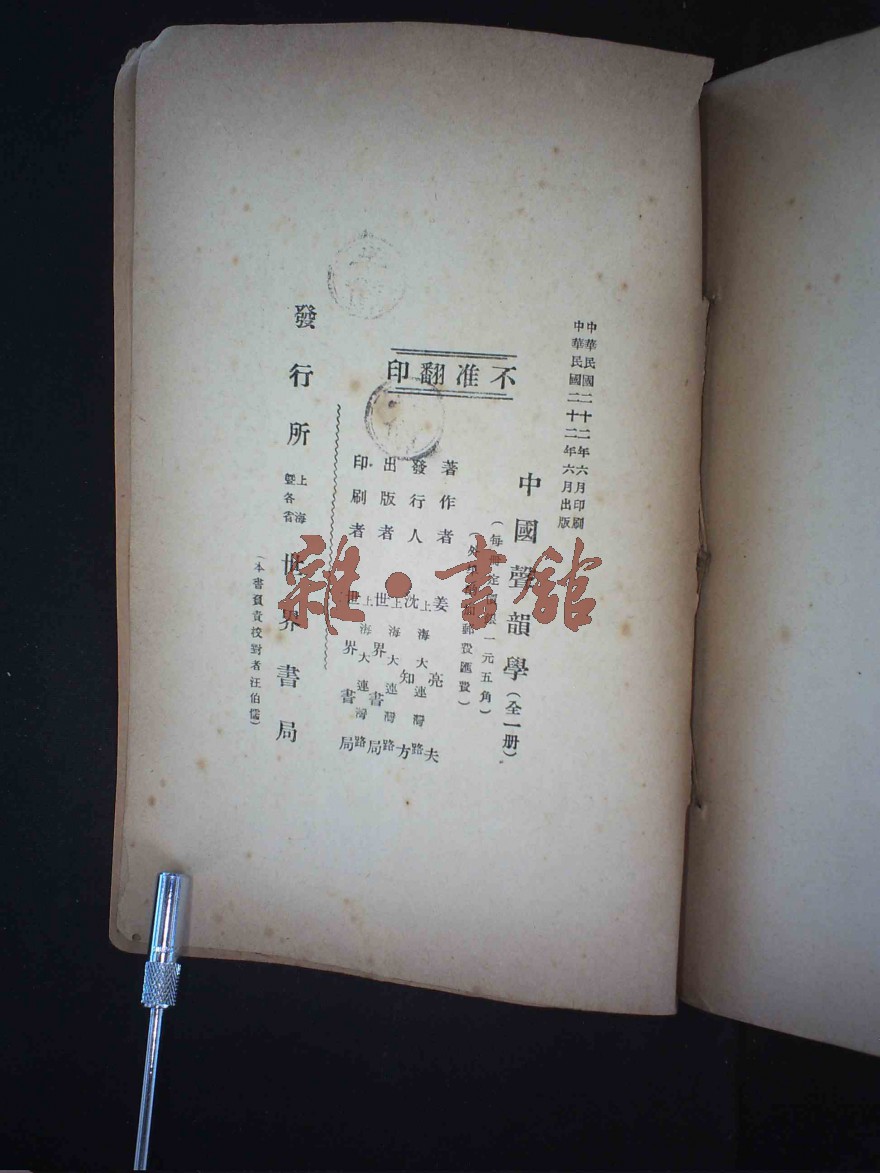 中華民國二十二年六月印刷
中華民國二十二年六月出版
中國聲韻學（全一册）
一元五角）
郵費匯費）
不准翻印
著作者 姜亮夫
發行人 上海大連灣路 沈知方
出版者 上海大連灣路 世界書局
印刷者 上海大連灣路 世界書局
發行所 上海暨各省 世界書局
（本書負責校對者汪伯儒）
雜·書館